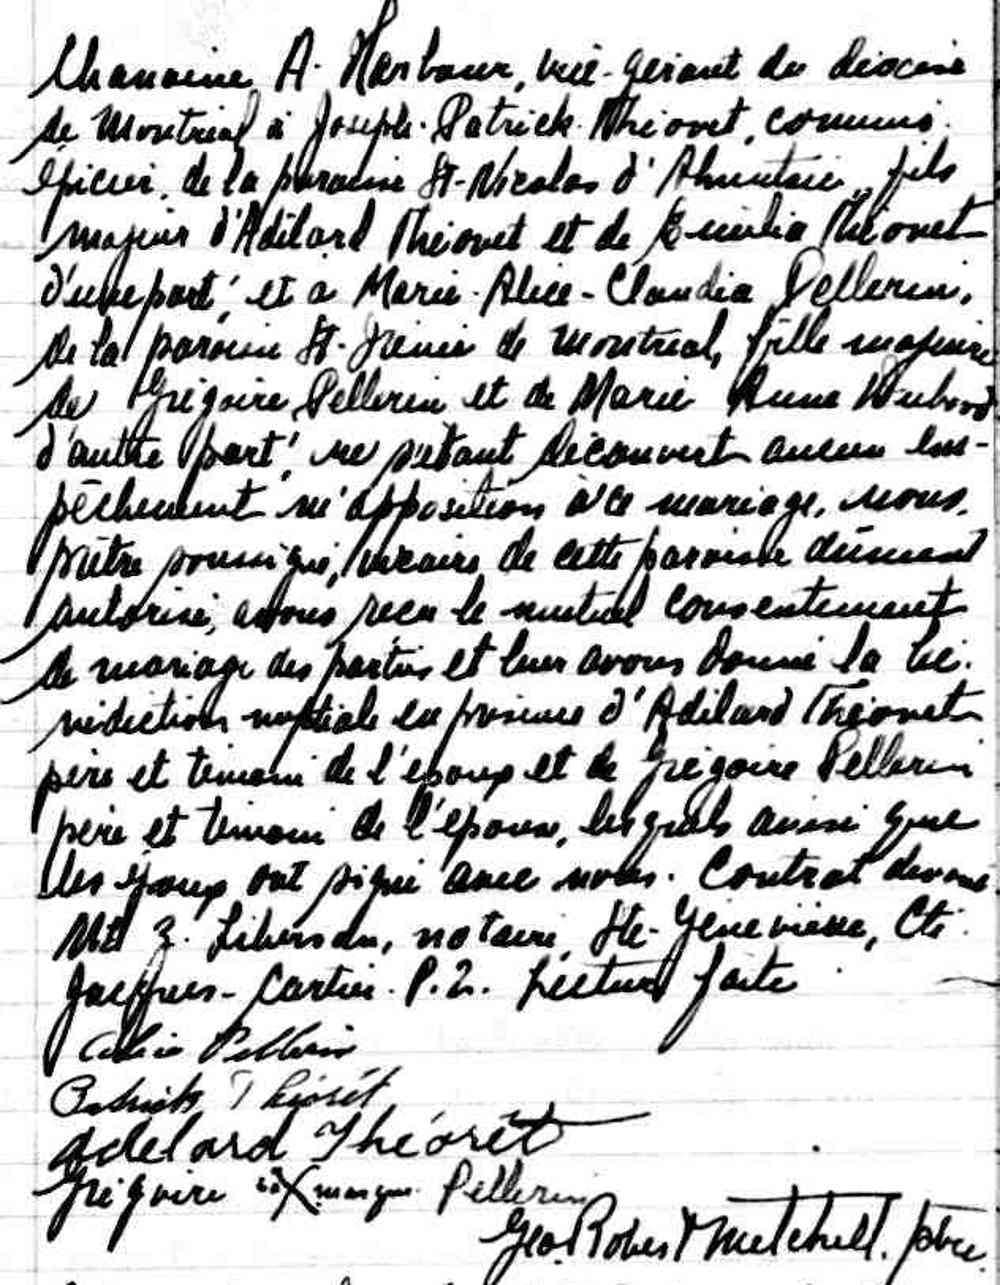 Chanoine A. Harbour, vice-gérant du diocèse
de Montréal à Joseph-Patrick Théoret, commis
épicier, de la paroisse St-Nicolas d'Ahuntsic, fils
majeur d'Adélard Théoret et de Emilia Théoret
d'une part; et à Marie-Alice-Claudia Pellerin,
de la paroisse St-Denis de Montréal, fille majeure
de Grégoire Pellerin et de Marie Anne
d'autre part; ne s'étant découvert aucun em-
pêchement ni opposition à ce mariage, nous,
prêtre soussigné, vicaire de cette paroisse dûment
autorisé, avons reçu le mutuel consentement
de mariage des parties et leur avons donné la bé-
nédiction nuptiale en présence d'Adélard Théoret
père et témoin de l'époux et de Grégoire Pellerin
père et témoin de l'épouse, lesquels ainsi que
les époux ont signé avec nous. Contrat devant
Mtre Z. Libersan, notaire, Ste-Geneviève, Cté
Jacques-Cartier. P.Q. Lecture faite
Pellerin
Patrick Théorêt
Adelard Théorêt
Grégoire sa X marque Pellerin
Geo. Robert Mitchell, ptre